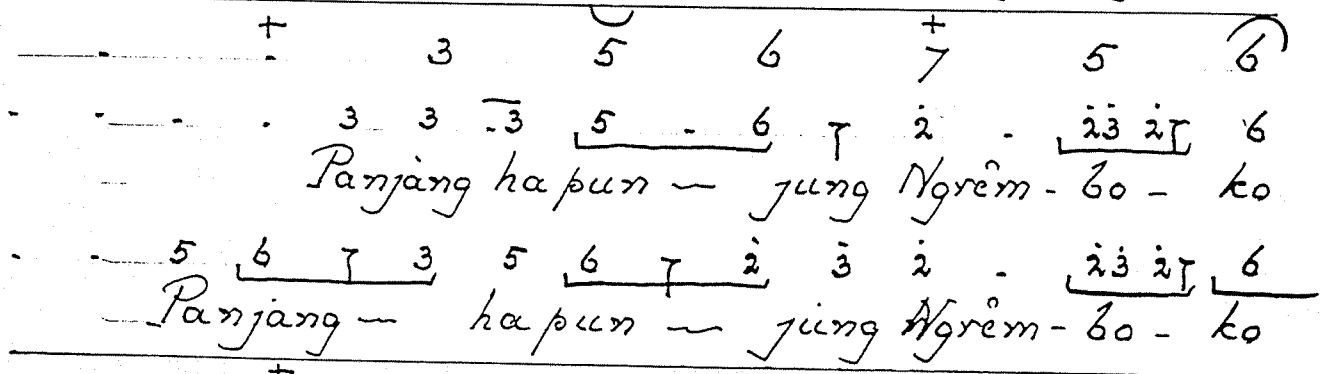 . + . 3 5 6 + 7 5 6
. . . . 3 3 .3 5 . 6 7 2̇ . 2̇3̇ 2̇7 6
Panjàng ha pun — jung Ngrêm - bo - ko
. . 5 6 7 3 5 6 7 2̇ 3̇ 2̇ . 2̇3̇ 2̇7 6
Panjang — ha pun — jung Ngrêm - bo - ko